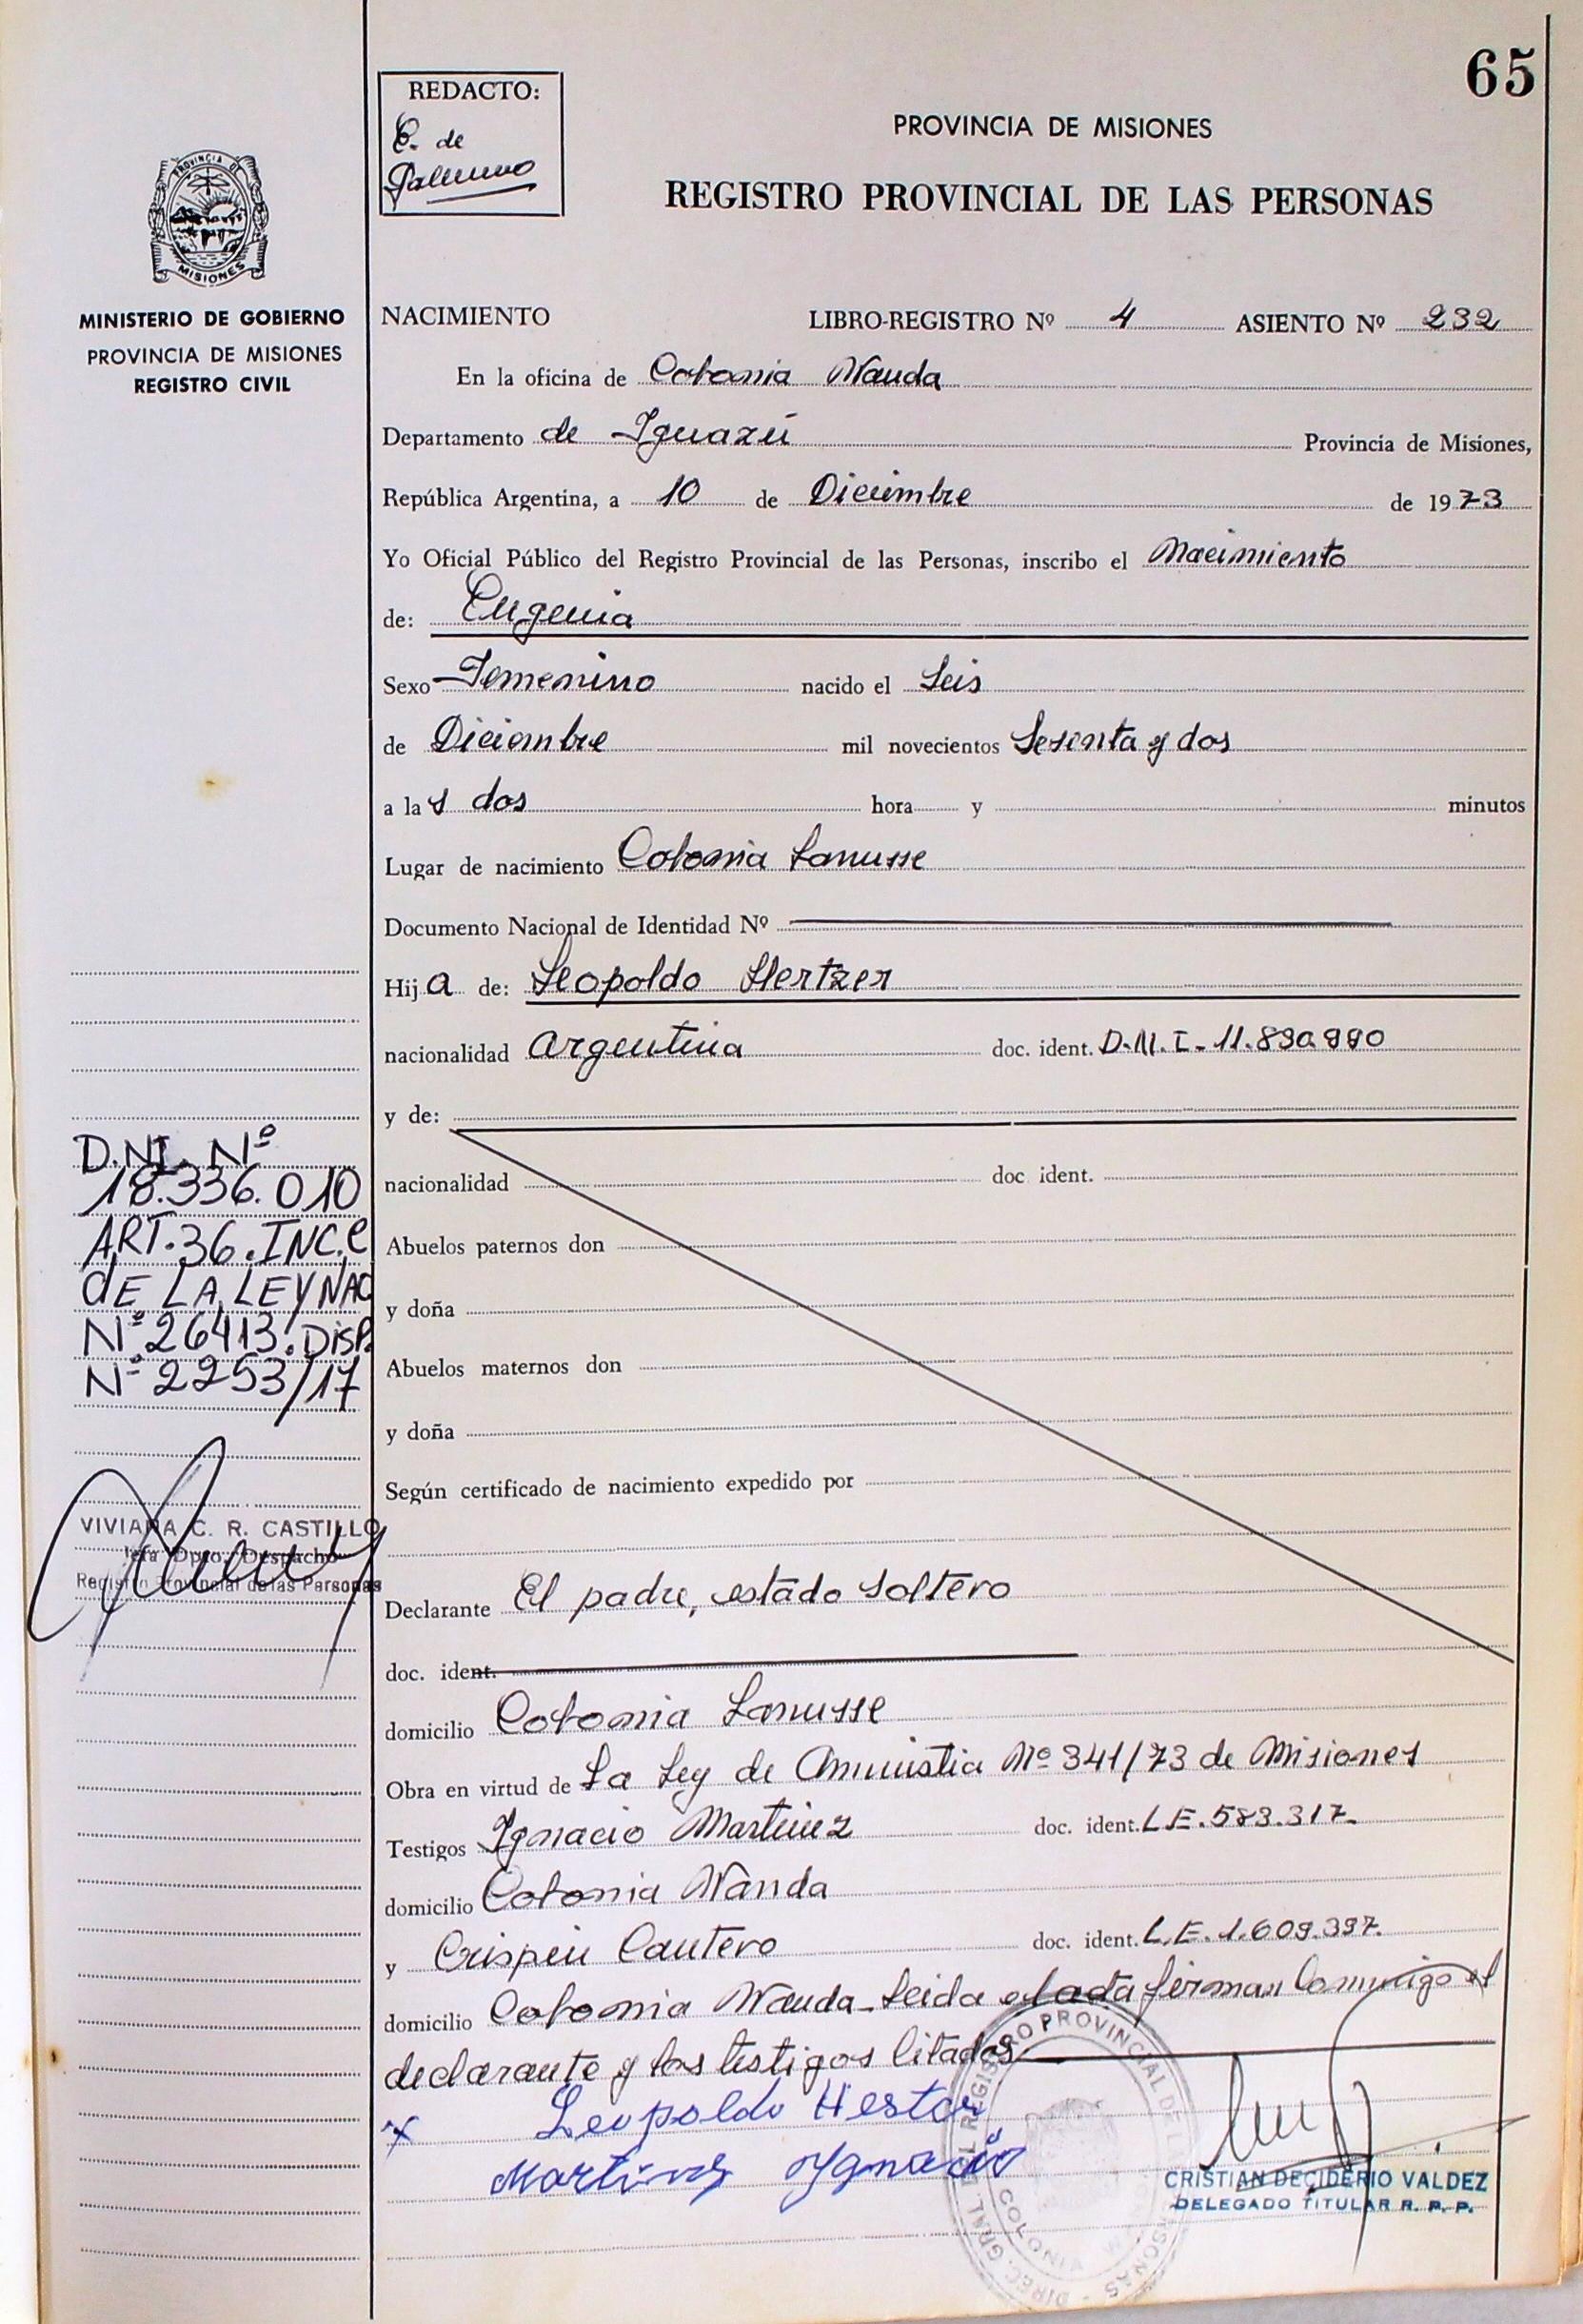 65
REDACTO:
E. de
PROVINCIA DE MISIONES
REGISTRO PROVINCIAL DE LAS PERSONAS
PROVINCIA DE
MISIONES
MINISTERIO DE GOBIERNO
PROVINCIA DE MISIONES
REGISTRO CIVIL
NACIMIENTO LIBRO-REGISTRO Nº 4 ASIENTO Nº 232
En la oficina de Colonia Wanda
Departamento de Iguazú Provincia de Misiones,
República Argentina, a 10 de Diciembre de 1973
Yo Oficial Público del Registro Provincial de las Personas, inscribo el Nacimiento
de: Eugenia
Sexo Femenino nacido el Seis
de Diciembre mil novecientos Sesenta y dos
a las dos hora y minutos
Lugar de nacimiento Colonia Lanusse
Documento Nacional de Identidad Nº
Hija de: Leopoldo Hertzer
nacionalidad Argentina doc. ident. D.N.I. 11.890.990
y de:
nacionalidad doc ident.
Abuelos paternos don
y doña
Abuelos maternos don
y doña
Según certificado de nacimiento expedido por
Declarante El padre, estado Soltero
doc. ident.
domicilio Colonia Lanusse
Obra en virtud de La Ley de Amnistia Nº 341/73 de Misiones
Testigos Ignacio Martinez doc. ident. L.E. 583.317.
domicilio Colonia Wanda
y Crispin Cantero doc. ident. L.E. 1.609.397.
domicilio Colonia Wanda - Leida el acta firman Conmigo el
declarante y los testigos Citados
x Leopoldo Hestor
Martinez Ygnacio
D.NI. Nº
18.336.010
ART.36.INC.C
dE LA LEY NAC
Nº 26413.DISP.
Nº 2253/17
VIVIANA C. R. CASTILLO
Jefa Dpto. Despacho
Registro Provincial de las Personas
DIREC. GRAL. DEL REGISTRO PROVINCIAL DE LAS PERSONAS
COLONIA W
CRISTIAN DECIDERIO VALDEZ
DELEGADO TITULAR R. P. P.